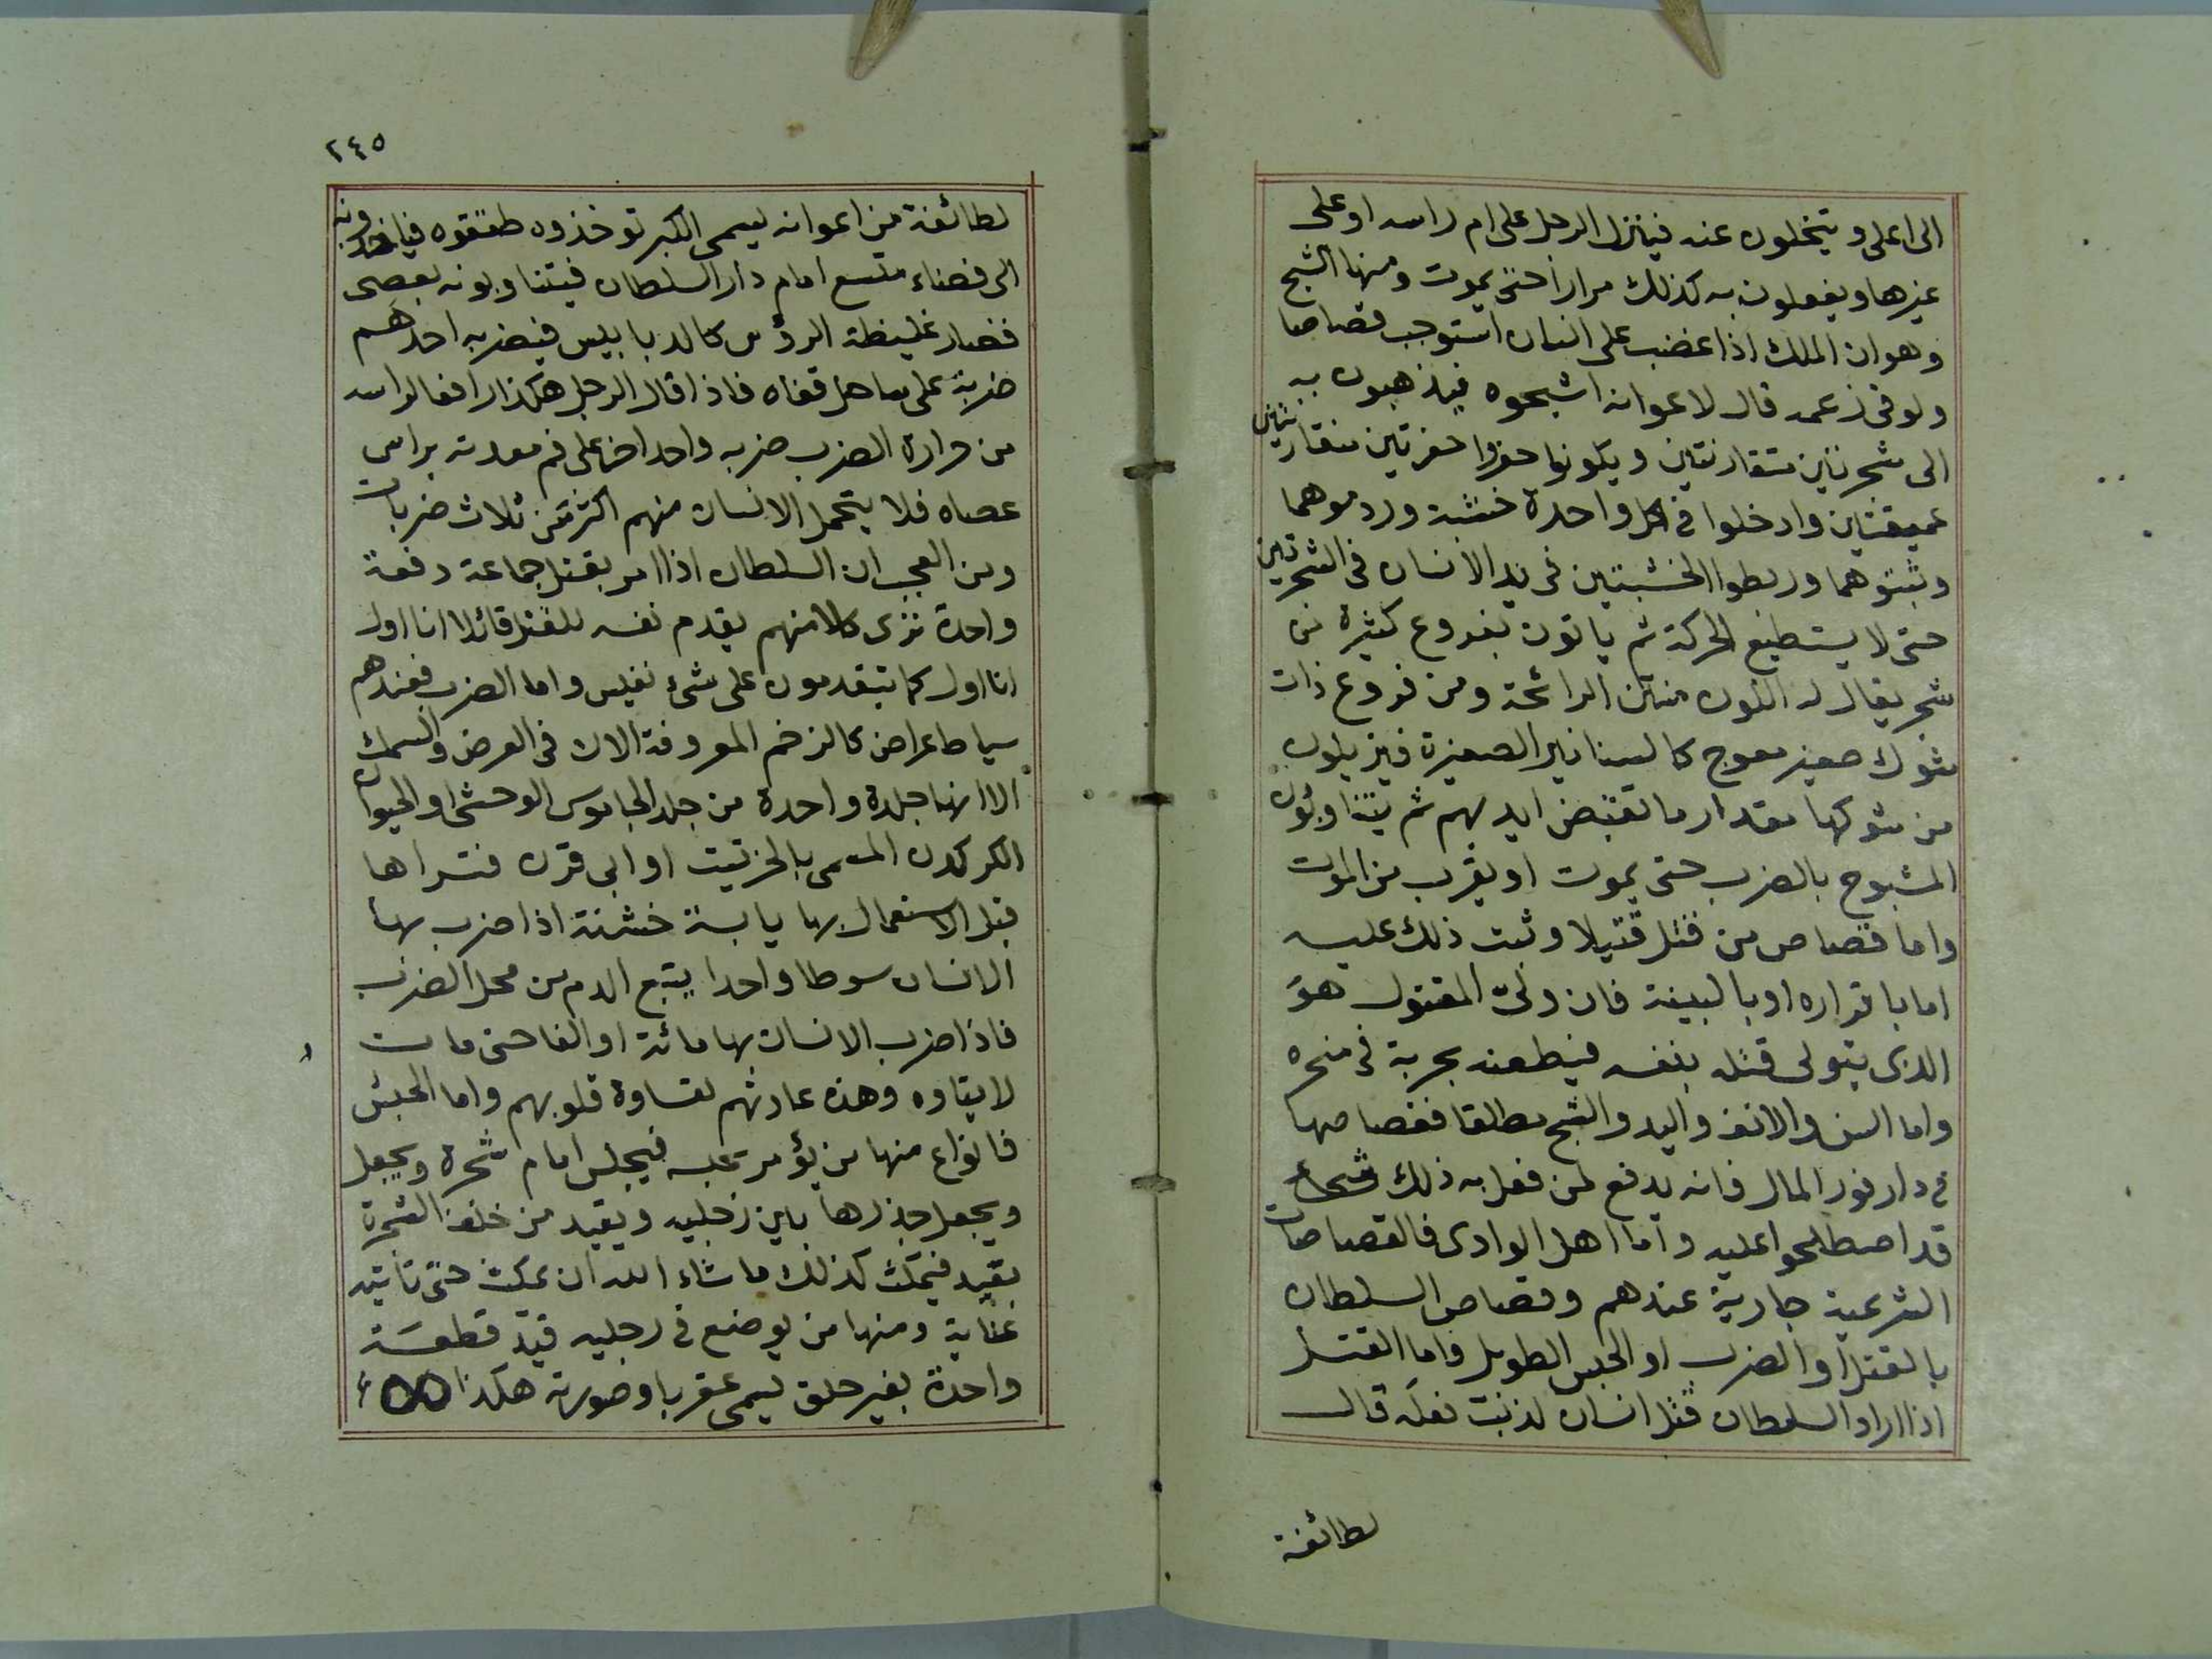 الى اعلى ويتخلون عنه فينزل الرجل على ام راسه او على
غيرها ويفعلون به كذلك مرارا حتى يموت ومنها الشبح
وهو ان الملك اذا غضب على انسان استوجب قصاصا
ولو فى زعمه قال لاعوانه اشبحوه فيذهبون به
الى شجرتين متقارنتين ويكونوا حفروا حفرتين متقاربتين
عميقتين وادخلوا فى كل واحدة خشبة وردموهما
وثبتوهما وربطوا الخشبتين فى يد الانسان فى الشجرتين
حتى لا يستطيع الحركة ثم ياتون بفروع كثيرة من
شجر يقال له اللون منتن الرائحة ومن فروع ذات
شوك صغير معوج كالسنانير الصغيرة فيزيلون
من شوكها مقدار ما تقبض ايديهم ثم يتناوبون
المشبوح بالضرب حتى يموت او يقرب من الموت
واما قصاص من قتل قتيلا وثبت ذلك عليه
اما باقراره او بالبينة فان ولى المقتول هو
الذى يتولى قتله بنفسه فيطعنه بحربة فى منحره
واما السن والانف واليد والشج مطلقا فقصاصها
فى دارفور المال فانه يدفع لمن فعل به ذلك شى
قد اصطلحوا عليه واما اهل الوادى فالقصاصات
الشرعية جارية عندهم وقصاص السلطان
بالقتل او الضرب او الحبس الطويل واما القتل
اذا اراد السلطان قتل انسان لذنب فعله قال
لطائفة
٢٤٥
لطائفة من اعوانه يسمى الكبرتو خذوه طقطقوه فياخذونه
الى فضاء متسع امام دار السلطان فيتناوبونه بعصى
قصار غليظة الرؤس كالدبابيس فيضربه احدهم
ضربة على ساحل قفاه فاذا قال الرجل هكذا رافعا راسه
من حرارة الضرب ضربه واحد اخر على فم معدته براس
عصاه فلا يتحمل الانسان منهم اكثر من ثلاث ضربات
ومن العجب ان السلطان اذا امر بقتل جماعة دفعة
واحدة ترى كلا منهم يقدم نفسه للقتل قائلا انا اول
انا اول كما يتقدمون على شئ نفيس واما الضرب فعندهم
سياط عراض كالزخم المعروفة الان فى العرض والسمك
الا انها جلدة واحدة من جلد الجاموس الوحشى او الحيوان
الكركدن المسمى بالخرتيت او ابى قرن فتراها
قبل الاستعمال بها يابسة خشنة اذا ضرب بها
الانسان سوطا واحدا ينبع الدم من محل الضرب
فاذا ضرب الانسان بها مائة او الفا حتى مات
لا يتاوه وهذه عادتهم لقساوة قلوبهم واما الحبس
فانواع منها من يؤمر بحبسه فيجلس امام شجرة ويجعل
ويجعل جذرها بين رجليه ويقيد من خلف الشجرة
بقيد فيمكث كذلك ما شاء الله ان يمكث حتى تاتيه
عناية ومنها من يوضع فى رجليه قيد قطعة
واحدة بغير حلق يسمى عقربا وصورته هكذا